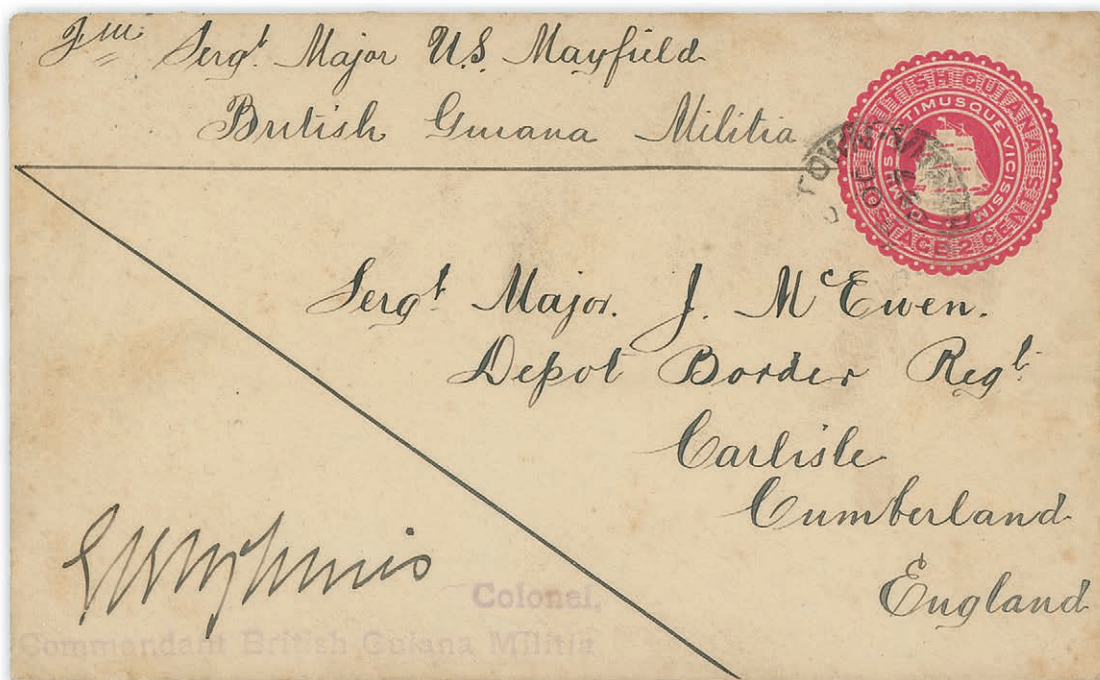 Fm Sergt. Major U.S. Mayfield
British Guiana Militia
BRITISH GUIANA
POSTAGE 2 CENTS
DAMUS PETIMUSQUE VICISSIM
OC
Sergt Major. J. McEwen.
Depot Border Regt.
Carlisle
Cumberland
England
Colonel,
Commandant British Guiana Militia